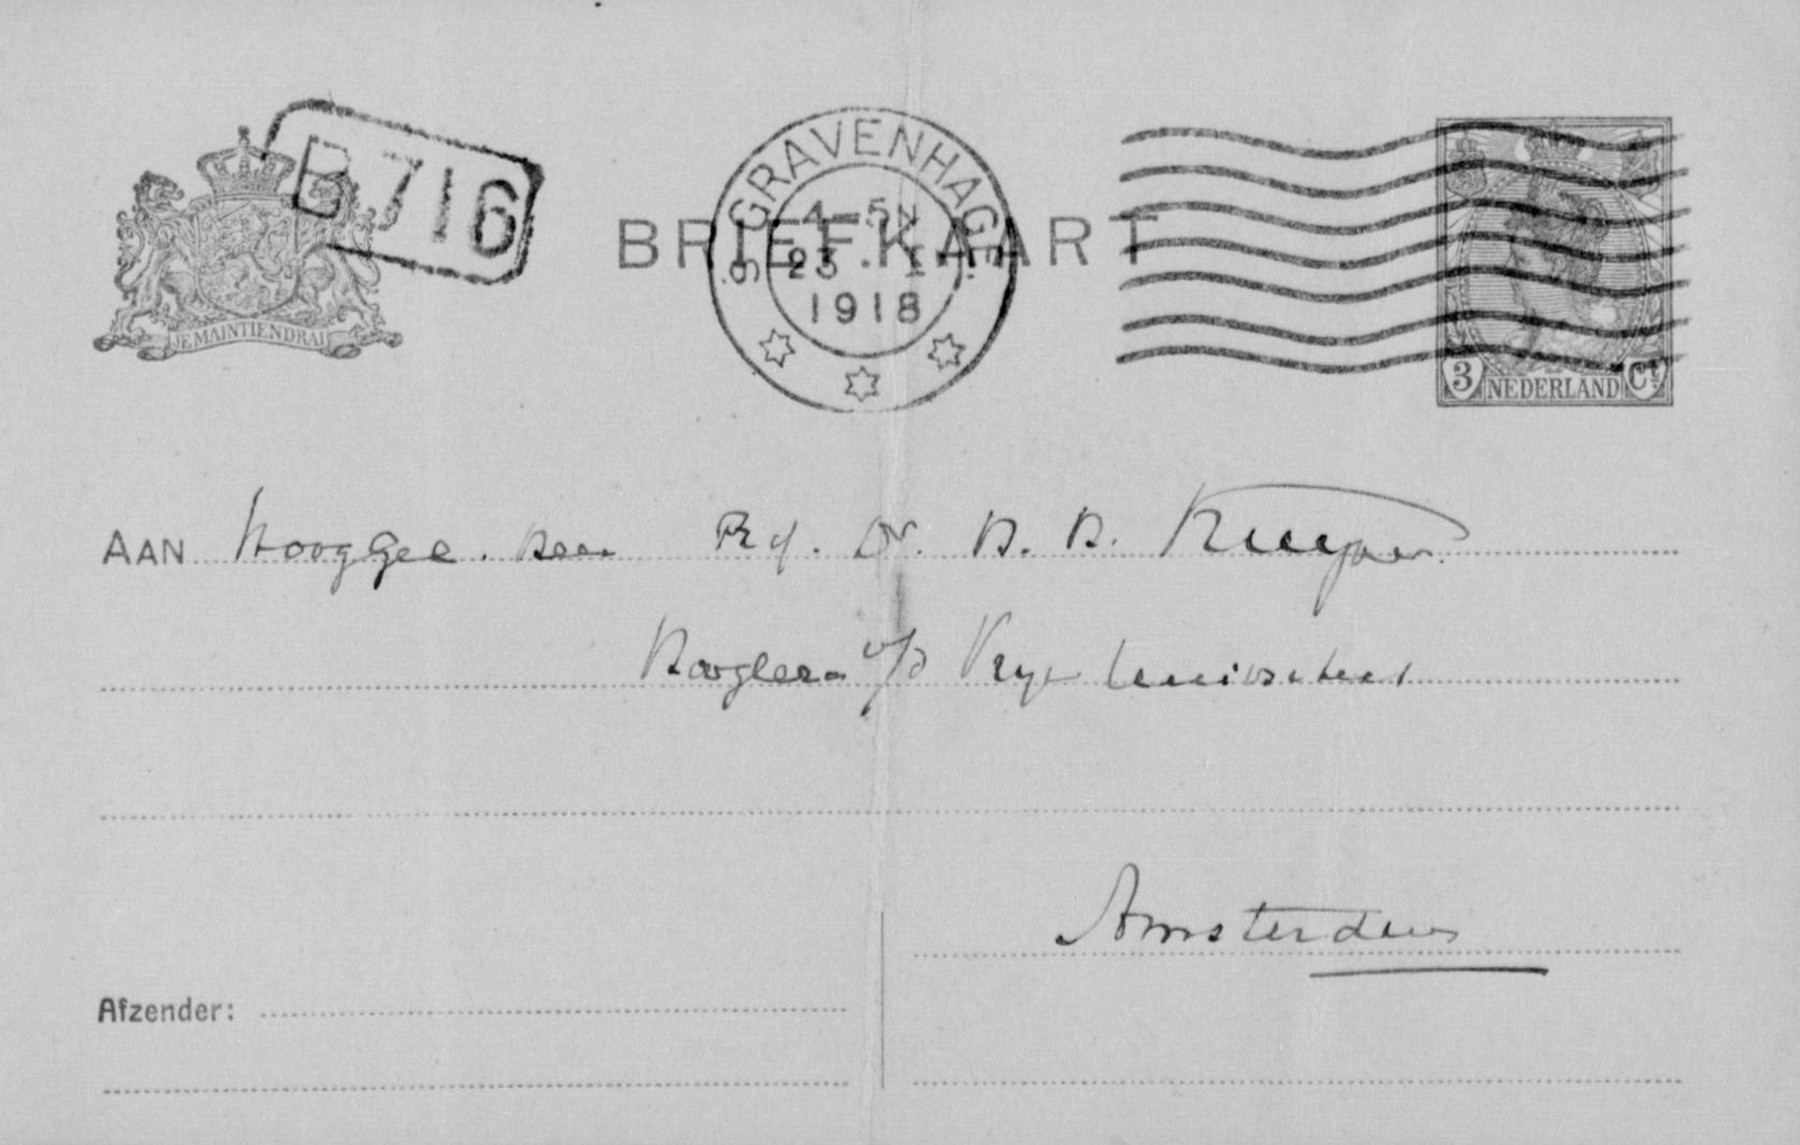 B716
'S GRAVENHAGE
4-5N
23.I
1918
BRIEFKAART
JE MAINTIENDRAI
3 NEDERLAND Ct
AAN HoogGel. Heer Prof. Dr. H. H. Kuyper.
Hoogleer. a/d Vrije Universiteit
Amsterdam
Afzender: